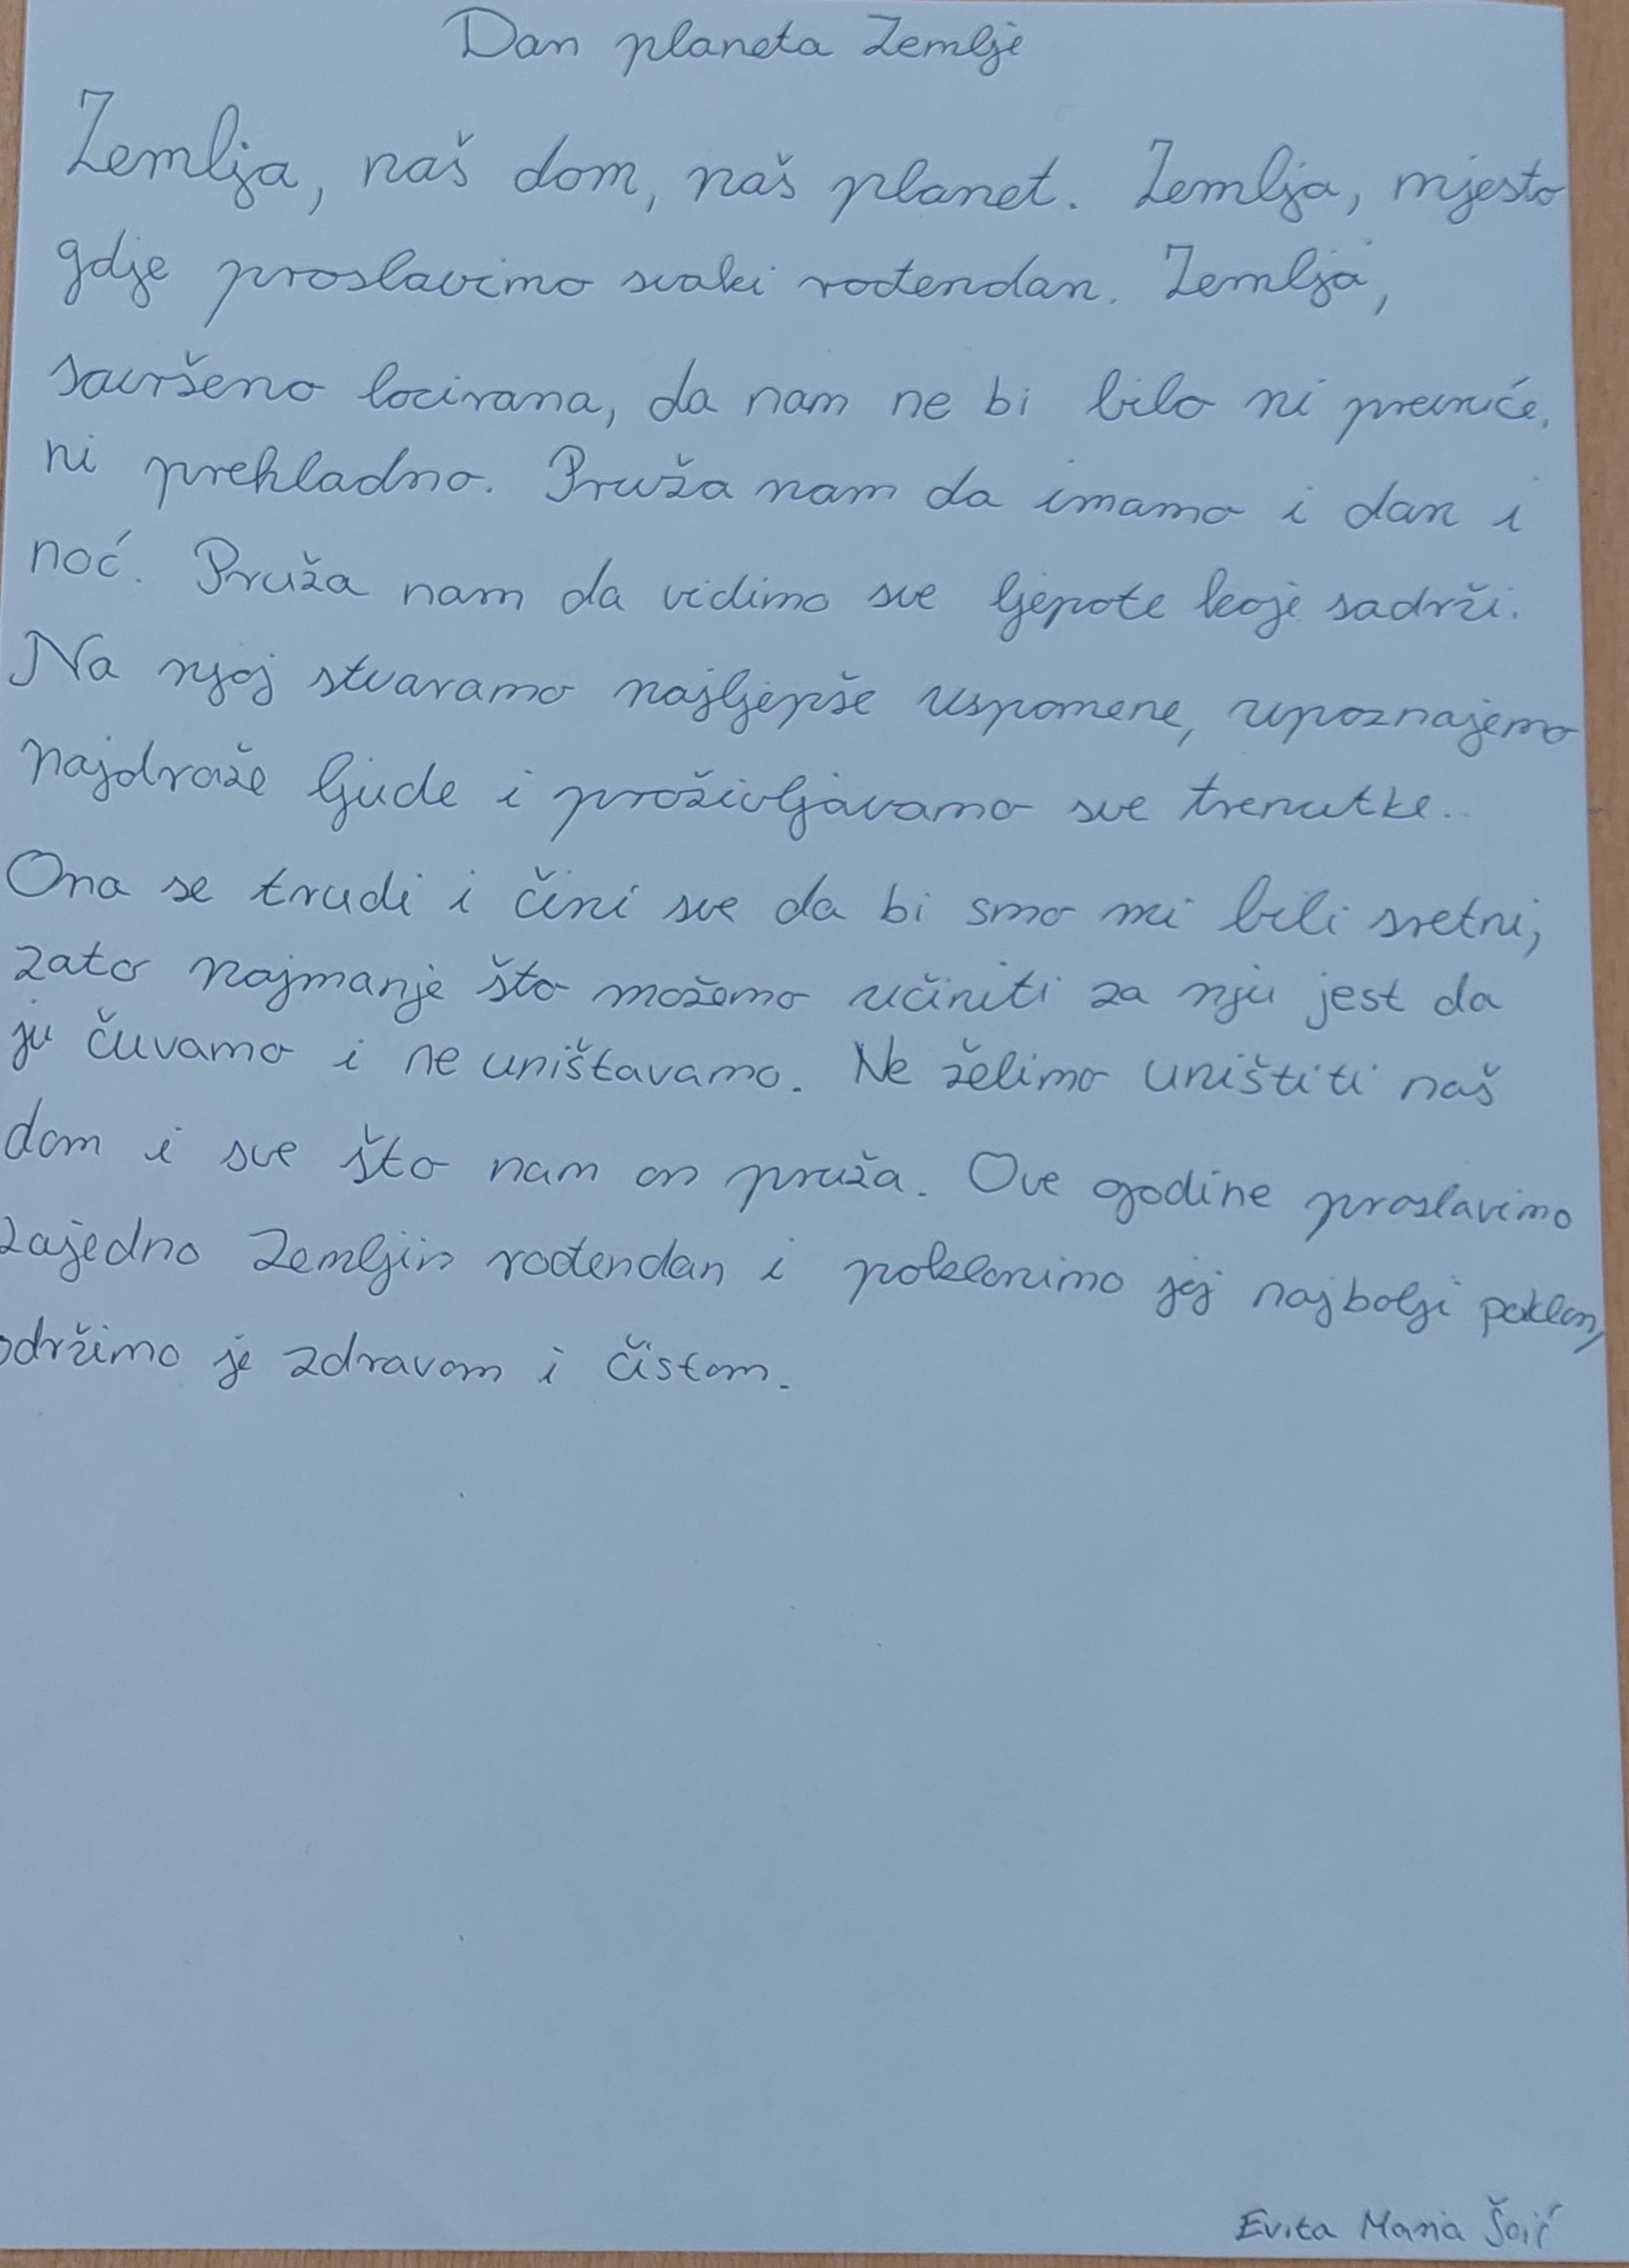 Dan planeta Zemlje
Zemlja, naš dom, naš planet. Zemlja, mjesto
gdje proslavimo svaki rođendan. Zemlja,
savršeno locirana, da nam ne bi bilo ni prevruće,
ni prehladno. Pruža nam da imamo i dan i
noć. Pruža nam da vidimo sve ljepote koje sadrži.
Na njoj stvaramo najljepše uspomene, upoznajemo
najdraže ljude i proživljavamo sve trenutke..
Ona se trudi i čini sve da bi smo mi bili sretni,
zato najmanje što možemo učiniti za nju jest da
ju čuvamo i ne uništavamo. Ne želimo uništiti naš
dom i sve što nam on pruža. Ove godine proslavimo
zajedno Zemljin rođendan i poklonimo joj najbolji poklon,
održimo je zdravom i čistom.
Evita Maria